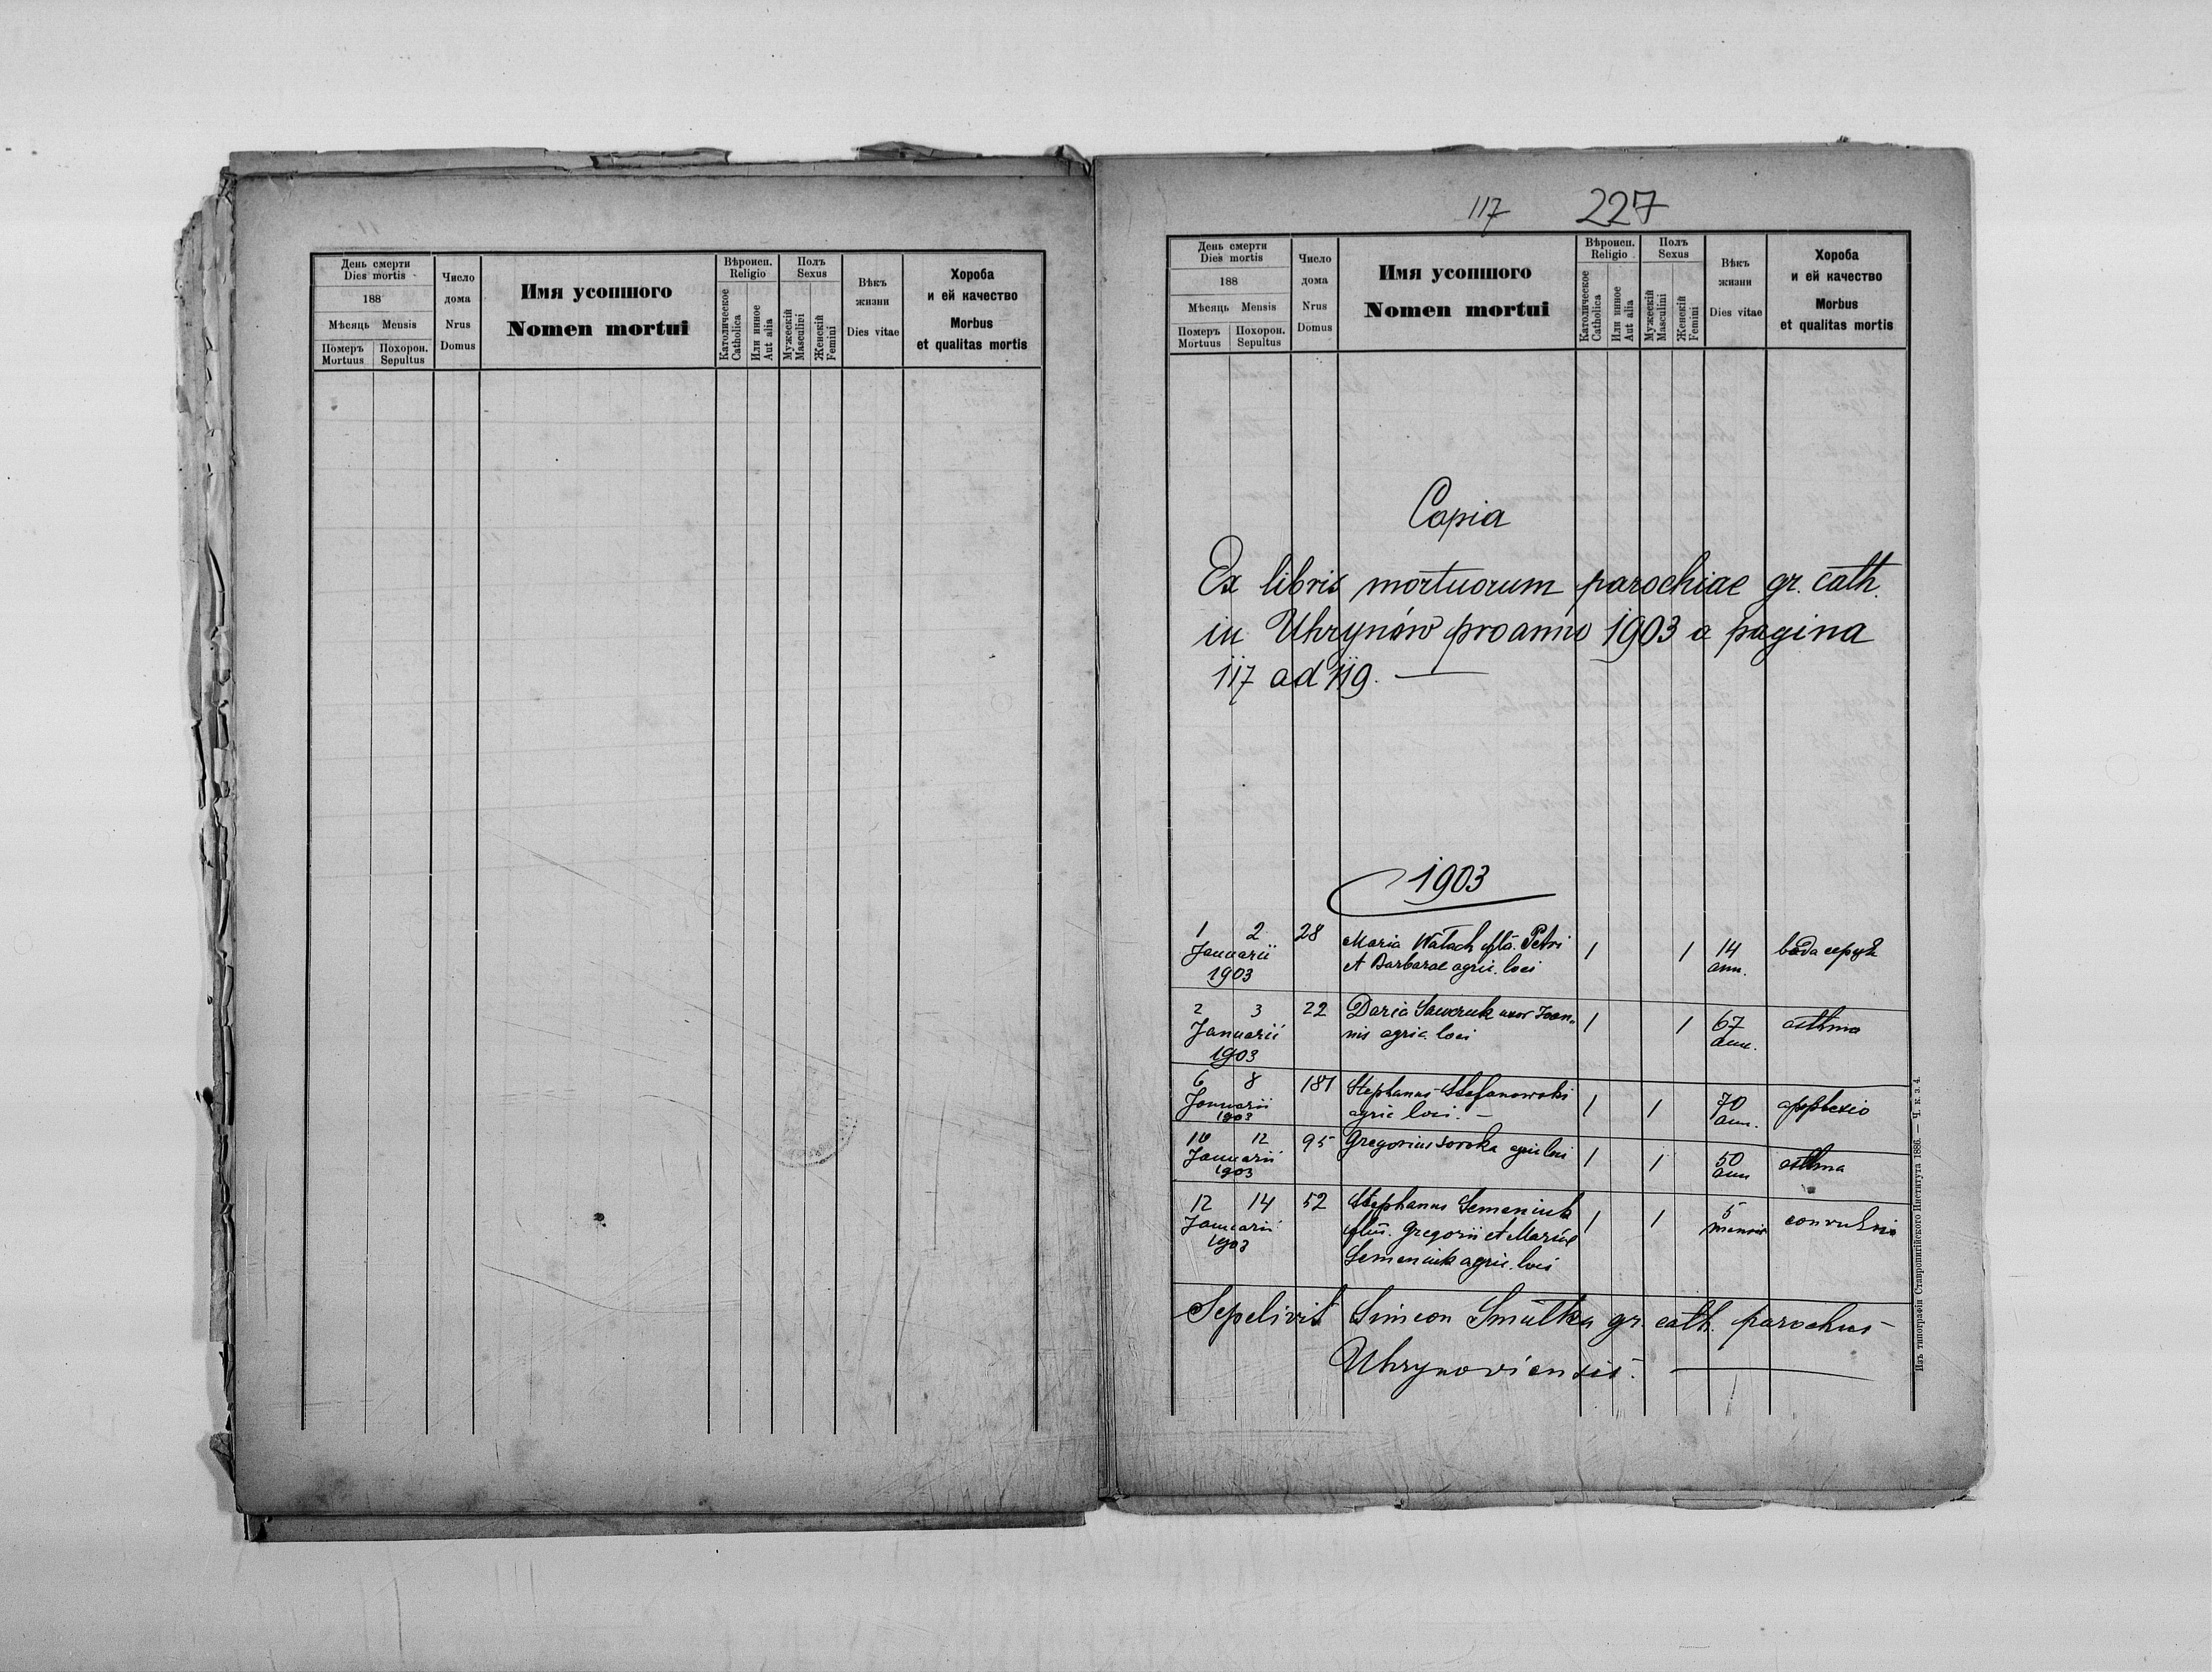 День смерти
Dies mortis
188
Мѣсяць Mensis
Померъ Похорон.
Mortuus Sepultus
Число
дома
Nrus
Domus
Имя усопшого
Nomen mortui
Вѣроисп.
Religio
Католическое
Catholica
Или инное
Aut alia
Полъ
Sexus
Мужескій
Masculini
Женскій
Femini
Вѣкъ
жизни
Dies vitae
Хороба
и ей качество
Morbus
et qualitas mortis
117 227
День смерти
Dies mortis
188
Мѣсяць Mensis
Померъ Похорон.
Mortuus Sepultus
Число
дома
Nrus
Domus
Имя усопшого
Nomen mortui
Вѣроисп.
Religio
Католическое
Catholica
Или инное
Aut alia
Полъ
Sexus
Мужескій
Masculini
Женскій
Femini
Вѣкъ
жизни
Dies vitae
Хороба
и ей качество
Morbus
et qualitas mortis
Copia
Ex libris mortuorum parochiae gr. cath.
in Uhrynów pro anno 1903 a pagina
117 ad 119. —
1903
1 2 28 Maria Watach fila. Petri 1 1 14 вада серця
Januarii et Barbarae agric. loci ann.
1903
2 3 22 Daria Sawczuk uxor Joan„ 1 1 67 asthma
Januarii nis agric. loci ann.
1903
6 8 181 Stephanus Stefanowski 1 1 70 apoplexio
Januarii agric loci. — ann.
1903
10 12 95 Gregorius Soroka agric loci 1 1 50 asthma
Januarii ann
1903
12 14 52 Stephanus Semeniuk 1 1 5 convulsio
Januarii filius. Gregorii et Mariae mensis
1903 Semeniuk agric. loci
Sepelivit Simeon Smulka gr. cath. parochus
Uhrynoviensis. —
Изъ типографіи Ставропигійского Института 1886. — Ч. к. з. 4.